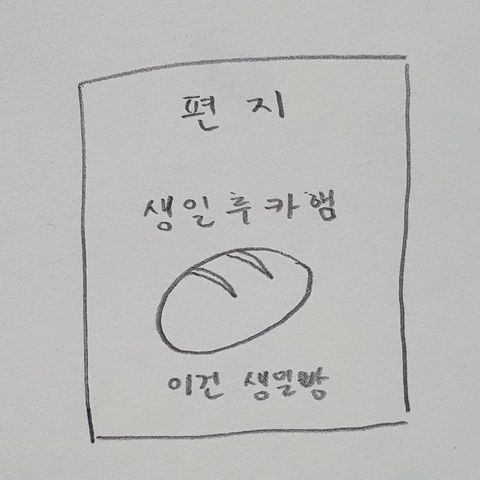 편지
생일루카햄
이건 생일빵